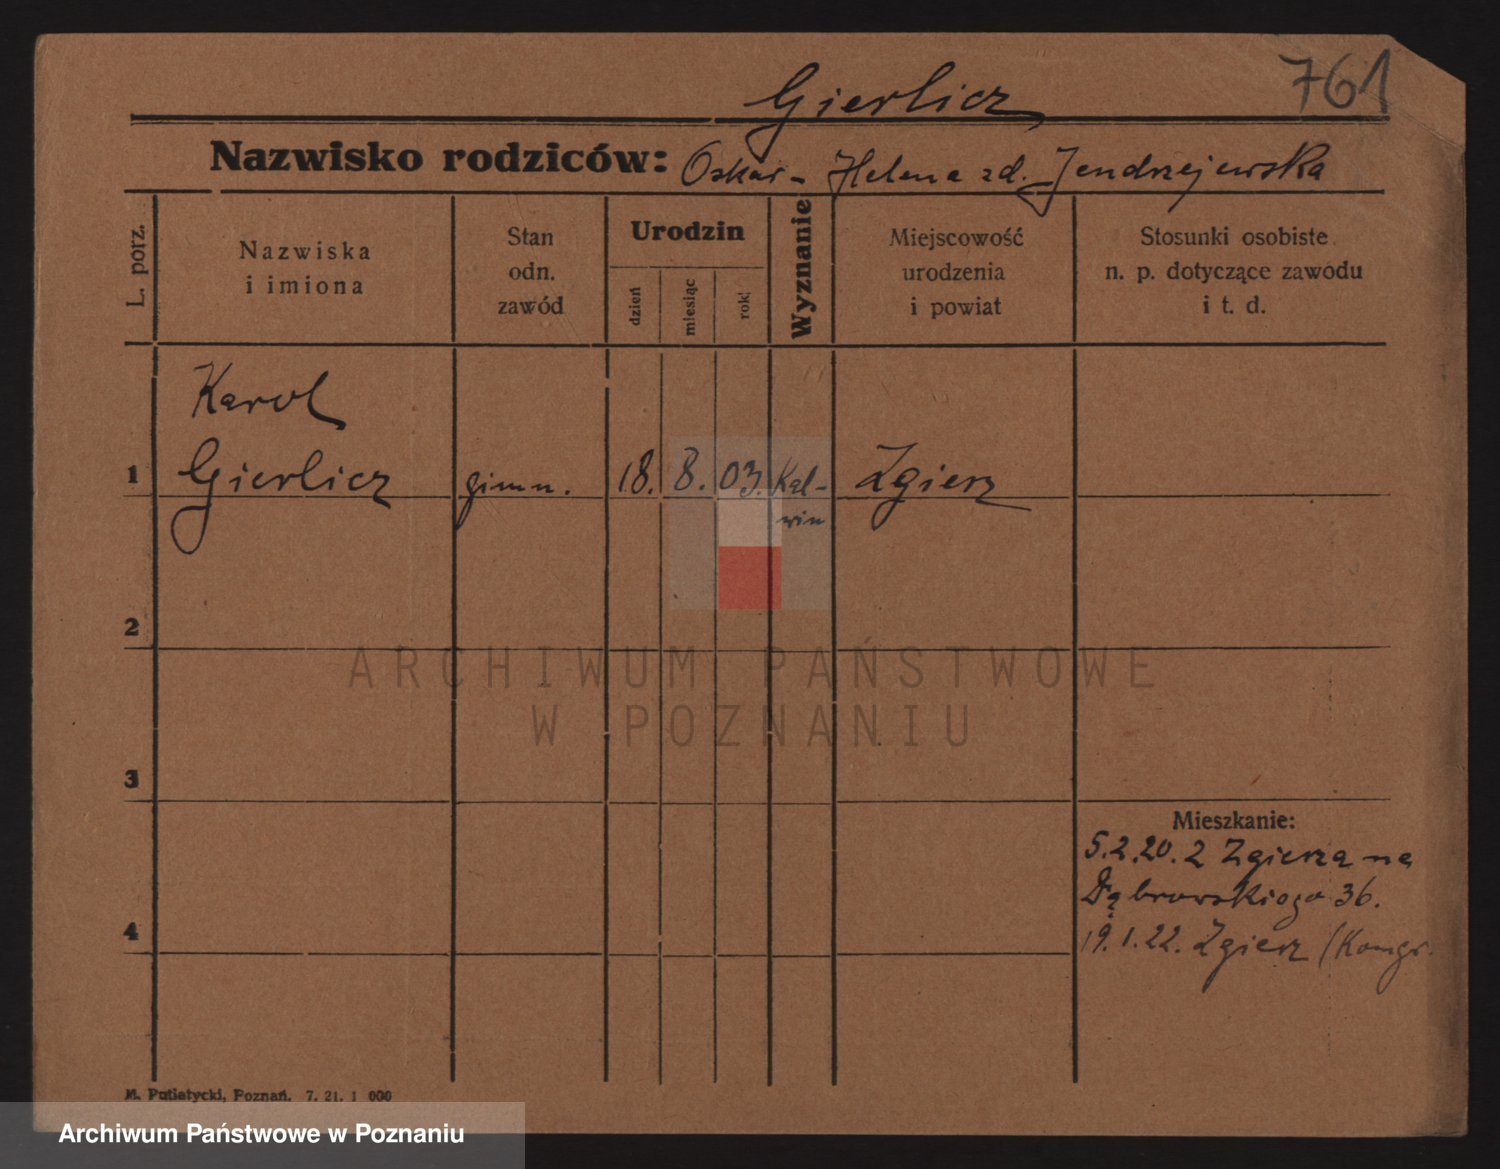 761
Gierlicz
Nazwisko rodziców: Oskar - Helena zd. Jendrzejewska
L. porz.
Nazwiska
i imiona
Stan
odn.
zawód
Urodzin
dzień
miesiąc
rok
Wyznanie
Miejscowość
urodzenia
i powiat
Stosunki osobiste
n. p. dotyczące zawodu
i t. d.
Karol
1 Gierlicz gimn. 18. 8. 03. Kal-
win
Zgierz
2
3
4
Mieszkanie:
5.2.20. z Zgierza na
Dąbrowskiego 36.
19.1.22. Zgierz (Kongr.
M. Putiatycki, Poznań. 7. 21. 1 000
ARCHIWUM PAŃSTWOWE
W POZNANIU
Archiwum Państwowe w Poznaniu